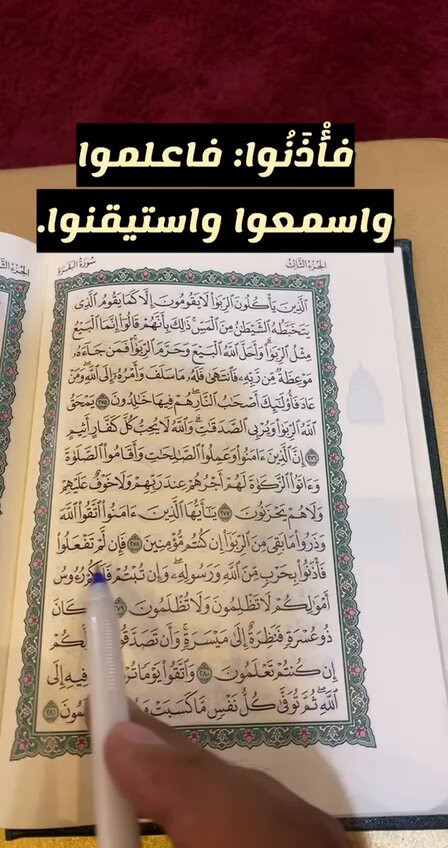 فَأْذَنُوا: فاعلموا
واسمعوا واستيقنوا.
الجزء الثالث
سورة البقرة
ٱلَّذِينَ يَأْكُلُونَ ٱلرِّبَوٰا۟ لَا يَقُومُونَ إِلَّا كَمَا يَقُومُ ٱلَّذِى
يَتَخَبَّطُهُ ٱلشَّيْطَٰنُ مِنَ ٱلْمَسِّ ذَٰلِكَ بِأَنَّهُمْ قَالُوٓا۟ إِنَّمَا ٱلْبَيْعُ
مِثْلُ ٱلرِّبَوٰا۟ وَأَحَلَّ ٱللَّهُ ٱلْبَيْعَ وَحَرَّمَ ٱلرِّبَوٰا۟ فَمَن جَآءَهُۥ
مَوْعِظَةٌ مِّن رَّبِّهِۦ فَٱنتَهَىٰ فَلَهُۥ مَا سَلَفَ وَأَمْرُهُۥٓ إِلَى ٱللَّهِ وَمَنْ
عَادَ فَأُو۟لَٰٓئِكَ أَصْحَٰبُ ٱلنَّارِ هُمْ فِيهَا خَٰلِدُونَ ٢٧٥ يَمْحَقُ
ٱللَّهُ ٱلرِّبَوٰا۟ وَيُرْبِى ٱلصَّدَقَٰتِ وَٱللَّهُ لَا يُحِبُّ كُلَّ كَفَّارٍ أَثِيمٍ
٢٧٦ إِنَّ ٱلَّذِينَ ءَامَنُوا۟ وَعَمِلُوا۟ ٱلصَّٰلِحَٰتِ وَأَقَامُوا۟ ٱلصَّلَوٰةَ
وَءَاتَوُا۟ ٱلزَّكَوٰةَ لَهُمْ أَجْرُهُمْ عِندَ رَبِّهِمْ وَلَا خَوْفٌ عَلَيْهِمْ
وَلَا هُمْ يَحْزَنُونَ ٢٧٧ يَٰٓأَيُّهَا ٱلَّذِينَ ءَامَنُوا۟ ٱتَّقُوا۟ ٱللَّهَ
وَذَرُوا۟ مَا بَقِىَ مِنَ ٱلرِّبَوٰٓا۟ إِن كُنتُم مُّؤْمِنِينَ ٢٧٨ فَإِن لَّمْ تَفْعَلُوا۟
فَأْذَنُوا۟ بِحَرْبٍ مِّنَ ٱللَّهِ وَرَسُولِهِۦ وَإِن تُبْتُمْ فَلَكُمْ رُءُوسُ
أَمْوَٰلِكُمْ لَا تَظْلِمُونَ وَلَا تُظْلَمُونَ ٢٧٩ كَانَ
ذُو عُسْرَةٍ فَنَظِرَةٌ إِلَىٰ مَيْسَرَةٍ وَأَن تَصَدَّقُوا۟ لَّكُمْ
إِن كُنتُمْ تَعْلَمُونَ ٢٨٠ وَٱتَّقُوا۟ يَوْمًا فِيهِ إِلَى
ٱللَّهِ ثُمَّ تُوَفَّىٰ كُلُّ نَفْسٍ مَّا كَسَبَتْ ٢٨١